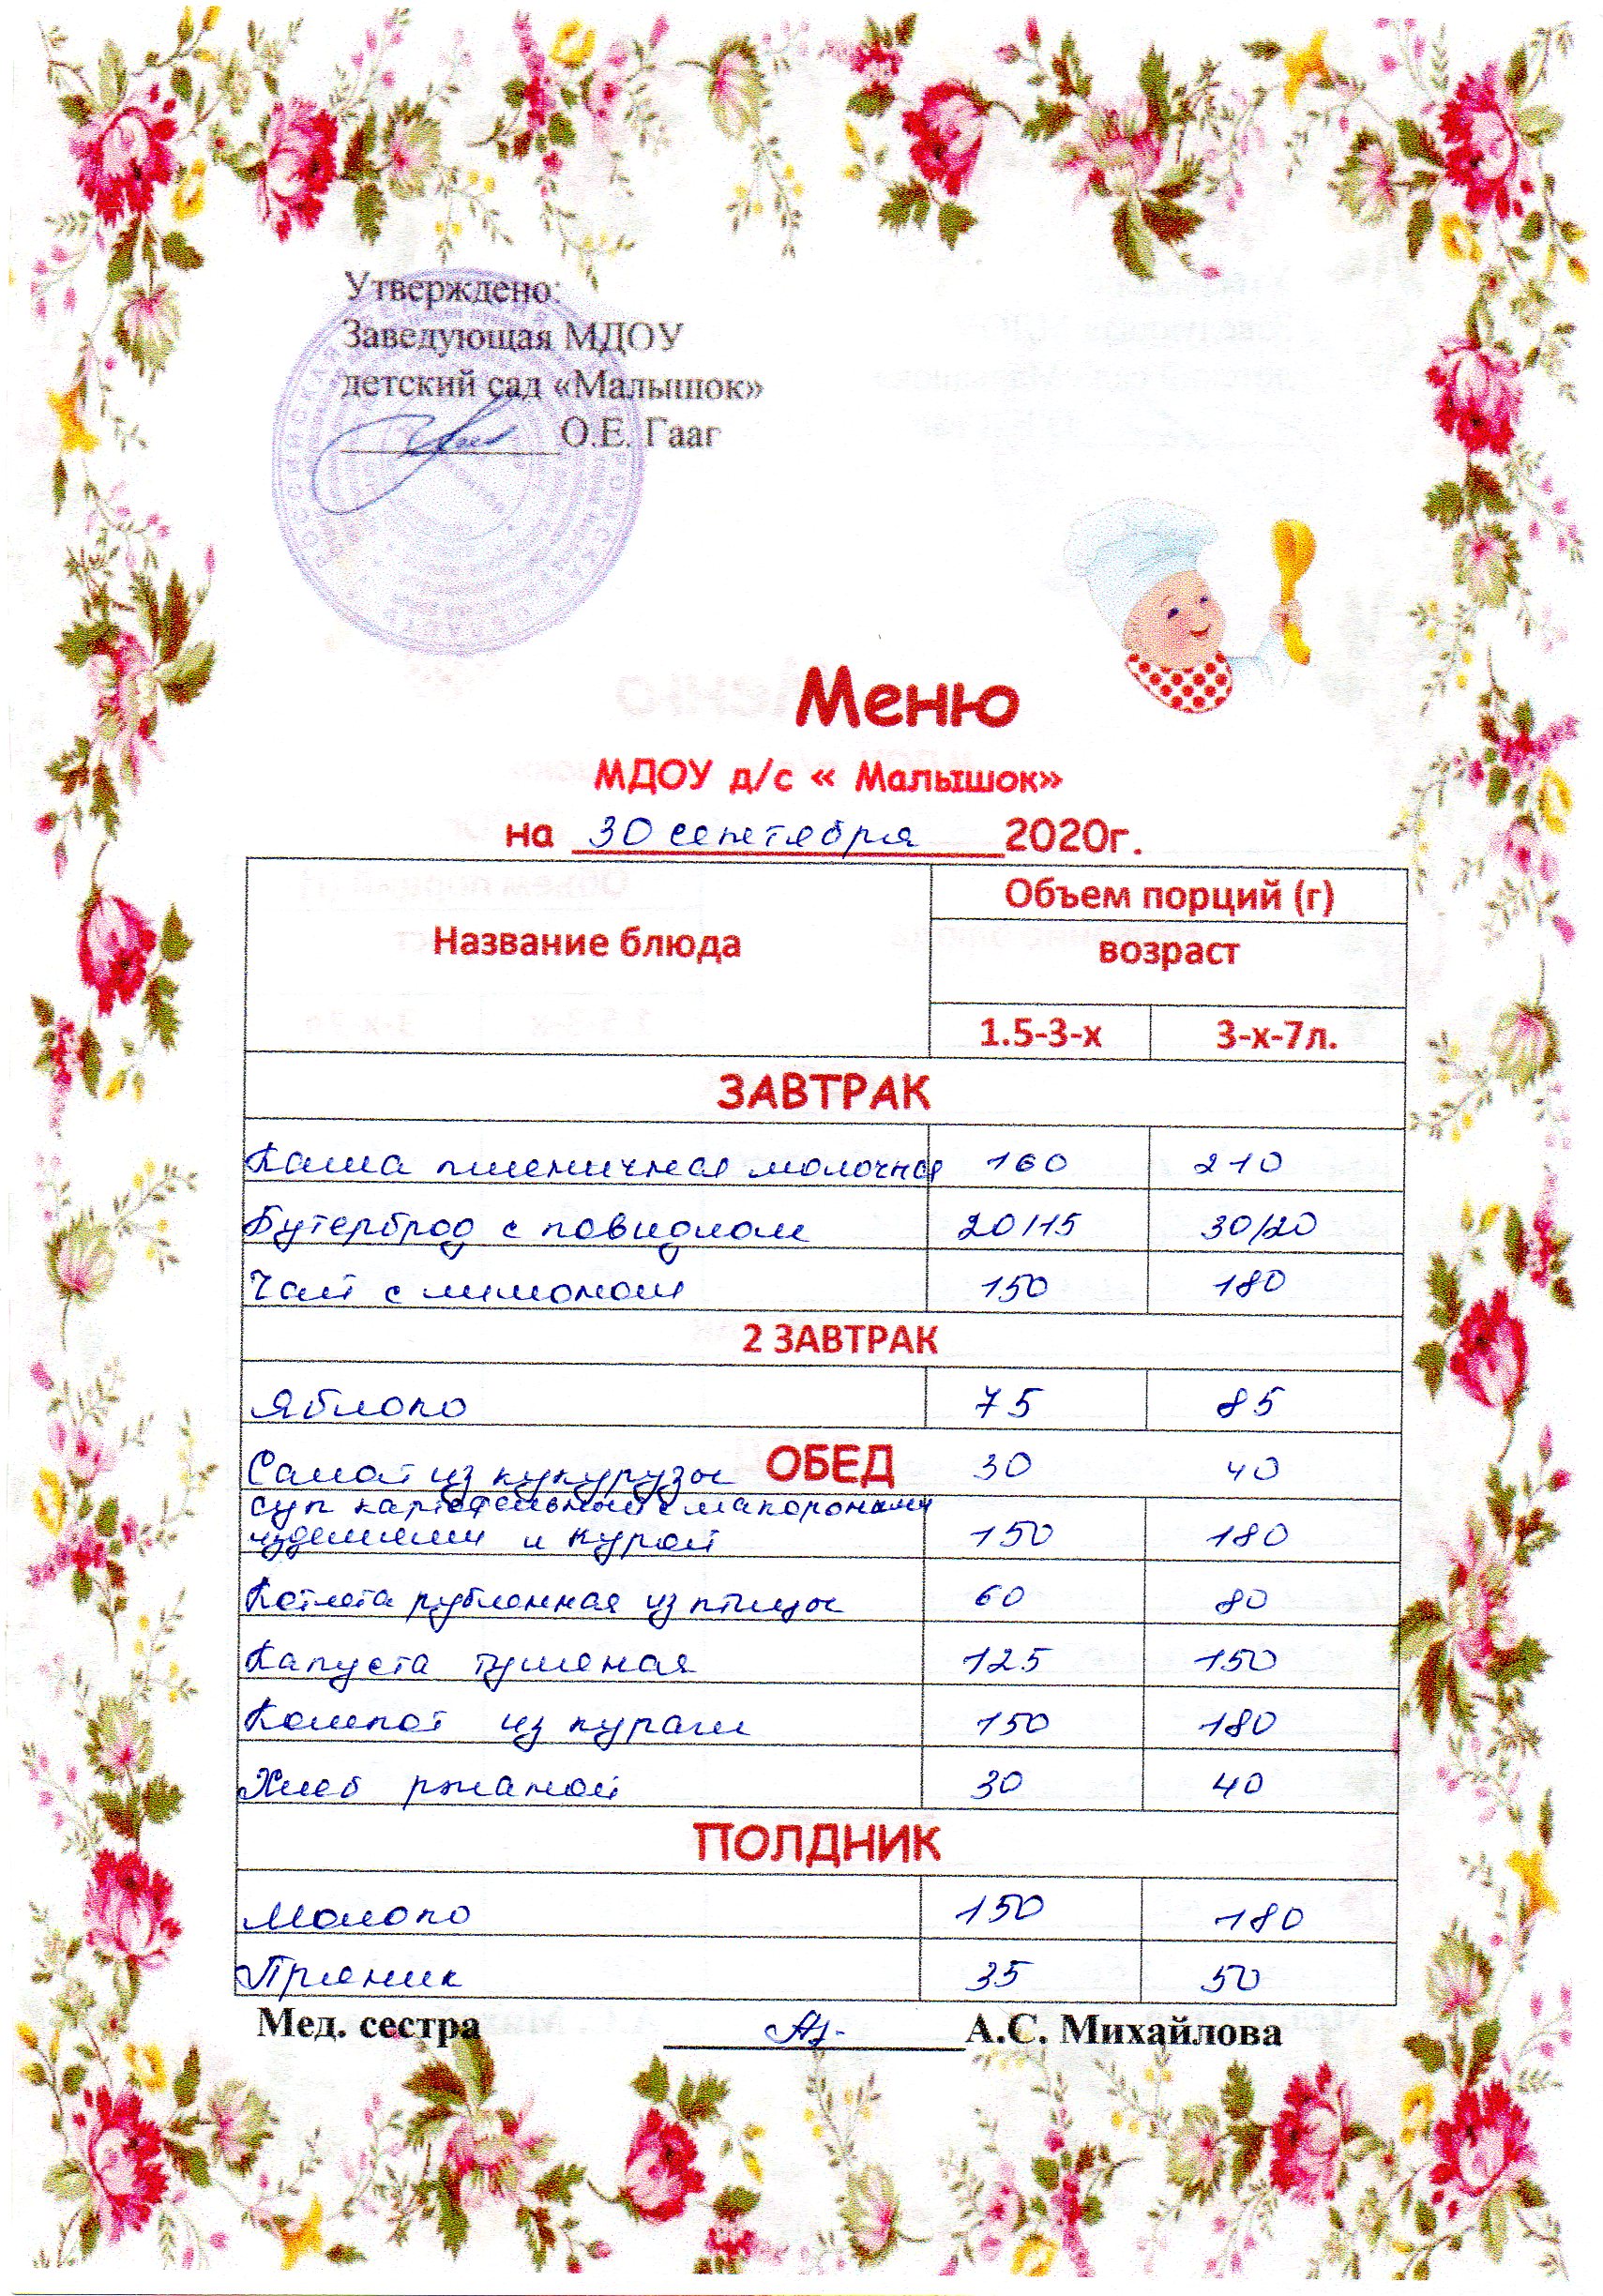 Утверждено:
Заведующая МДОУ
детский сад «Малышок»
О.Е. Гааг
Меню
МДОУ д/с « Малышок»
на 30 сентября 2020г.
Название блюда
Объем порций (г)
возраст
1.5-3-х 3-х-7л.
ЗАВТРАК
Каша пшеничная молочная 160 210
Бутерброд с повидлом 20/15 30/20
Чай с лимоном 150 180
2 ЗАВТРАК
Яблоко 75 85
Салат из кукурузы ОБЕД 30 40
суп картофельный с макаронами
изделиями и курой 150 180
Котлета рубленная из птицы 60 80
Капуста тушеная 125 150
Компот из кураги 150 180
Хлеб ржаной 30 40
ПОЛДНИК
Молоко 150 180
Пряник 35 50
Мед. сестра А.С. Михайлова